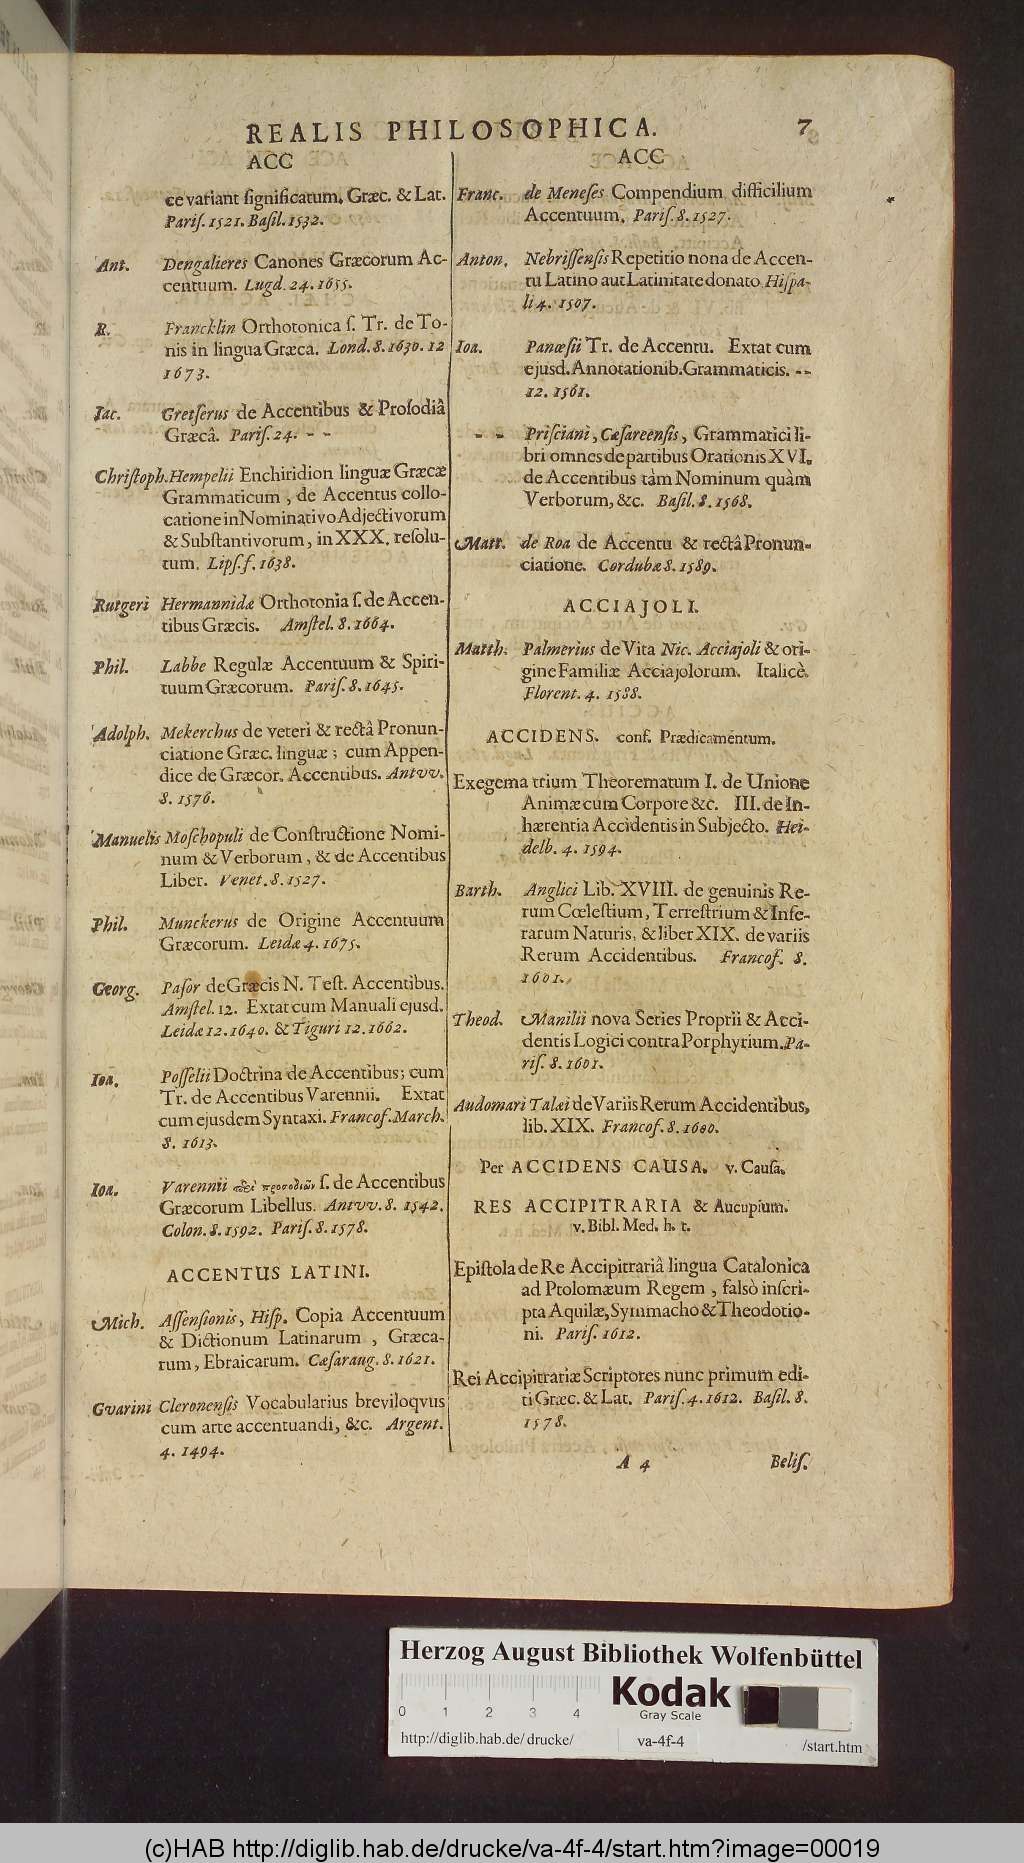 REALIS PHILOSOPHICA. 7
ACC
ce variant ſignificatum. Græc. & Lat.
Pariſ. 1521. Baſil. 1532.
Ant. Dengalieres Canones Græcorum Ac-
centuum. Lugd. 24. 1655.
R. Francklin Orthotonica ſ. Tr. de To-
nis in lingua Græca. Lond. 8. 1630. 12
1673.
Iac. Gretſerus de Accentibus & Proſodiâ
Græcâ. Pariſ. 24. - -
Chriſtoph. Hempelii Enchiridion linguæ Græcæ
Grammaticum, de Accentus collo-
catione in Nominativo Adjectivorum
& Subſtantivorum, in XXX. reſolu-
tum. Lipſ. f. 1638.
Rutgeri Hermannidæ Orthotonia ſ. de Accen-
tibus Græcis. Amſtel. 8. 1664.
Phil. Labbe Regulæ Accentuum & Spiri-
tuum Græcorum. Pariſ. 8. 1645.
Adolph. Mekerchus de veteri & rectâ Pronun-
ciatione Græc. linguæ; cum Appen-
dice de Græcor. Accentibus. Antvv.
8. 1576.
Manuelis Moſchopuli de Conſtructione Nomi-
num & Verborum, & de Accentibus
Liber. Venet. 8. 1527.
Phil. Munckerus de Origine Accentuum
Græcorum. Leidæ 4. 1675.
Georg. Paſor de Græcis N. Teſt. Accentibus.
Amſtel. 12. Extat cum Manuali ejusd.
Leidæ 12. 1640. & Tiguri 12. 1662.
Ioa. Poſſelii Doctrina de Accentibus; cum
Tr. de Accentibus Varennii. Extat
cum ejusdem Syntaxi. Francof. March.
8. 1613.
Ioa. Varennii περὶ προσῳδιῶν ſ. de Accentibus
Græcorum Libellus. Antvv. 8. 1542.
Colon. 8. 1592. Pariſ. 8. 1578.
ACCENTUS LATINI.
Mich. Aſſenſionis, Hiſp. Copia Accentuum
& Dictionum Latinarum, Græca-
rum, Ebraicarum. Cæſaraug. 8. 1621.
Gvarini Cleronenſis Vocabularius breviloqvus
cum arte accentuandi, &c. Argent.
4. 1494.
ACC
Franc. de Meneſes Compendium difficilium
Accentuum. Pariſ. 8. 1527.
Anton. Nebriſſenſis Repetitio nona de Accen-
tu Latino aut Latinitate donato Hiſpa-
li 4. 1507.
Ioa. Panœſii Tr. de Accentu. Extat cum
ejusd. Annotationib. Grammaticis. --
12. 1561.
- - Priſciani, Cæſareenſis, Grammatici li-
bri omnes de partibus Orationis XVI.
de Accentibus tàm Nominum quàm
Verborum, &c. Baſil. 8. 1568.
Matt. de Roa de Accentu & rectâ Pronun-
ciatione. Cordubæ 8. 1589.
ACCIAJOLI.
Matth. Palmerius de Vita Nic. Acciajoli & ori-
gine Familiæ Acciajolorum. Italicè.
Florent. 4. 1588.
ACCIDENS. conf. Prædicamentum.
Exegema trium Theorematum I. de Unione
Animæ cum Corpore &c. III. de In-
hærentia Accidentis in Subjecto. Hei-
delb. 4. 1594.
Barth. Anglici Lib. XVIII. de genuinis Re-
rum Cœleſtium, Terreſtrium & Infe-
rarum Naturis, & liber XIX. de variis
Rerum Accidentibus. Francof. 8.
1601.
Theod. Manilii nova Series Proprii & Acci-
dentis Logici contra Porphyrium. Pa-
riſ. 8. 1601.
Audomari Talæi de Variis Rerum Accidentibus,
lib. XIX. Francof. 8. 1600.
Per ACCIDENS CAUSA. v. Cauſa.
RES ACCIPITRARIA & Aucupium.
v. Bibl. Med. h. t.
Epiſtola de Re Accipitrariâ lingua Catalonica
ad Ptolomæum Regem, falsò inſcri-
pta Aquilæ, Symmacho & Theodotio-
ni. Pariſ. 1612.
Rei Accipitrariæ Scriptores nunc primum edi-
ti Græc. & Lat. Pariſ. 4. 1612. Baſil. 8.
1578.
A 4 Beliſ.
Herzog August Bibliothek Wolfenbüttel
0 1 2 3 4
Kodak
Gray Scale
http://diglib.hab.de/drucke/ va-4f-4 /start.htm
(c)HAB http://diglib.hab.de/drucke/va-4f-4/start.htm?image=00019